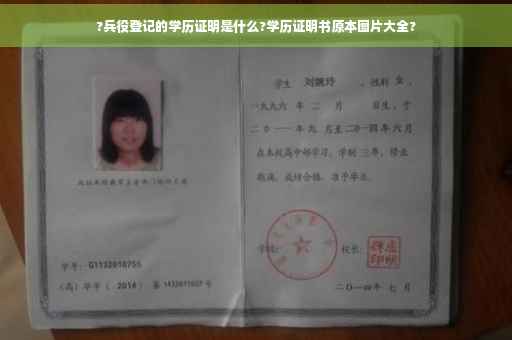 ?兵役登记的学历证明是什么?学历证明书原本图片大全?
学生 刘婉玲 ,性别 女 ,
一九九六 年 二 月 日生,于
二〇一一 年 九 月至 二〇一四 年 六 月
在本校高中部学习,学制 三 年,修业
期满,成绩合格,准予毕业。
学校: 校长:
二〇一四 年 七 月
学号: G1132010755
(高)毕字( 2014 )第 1432011027 号